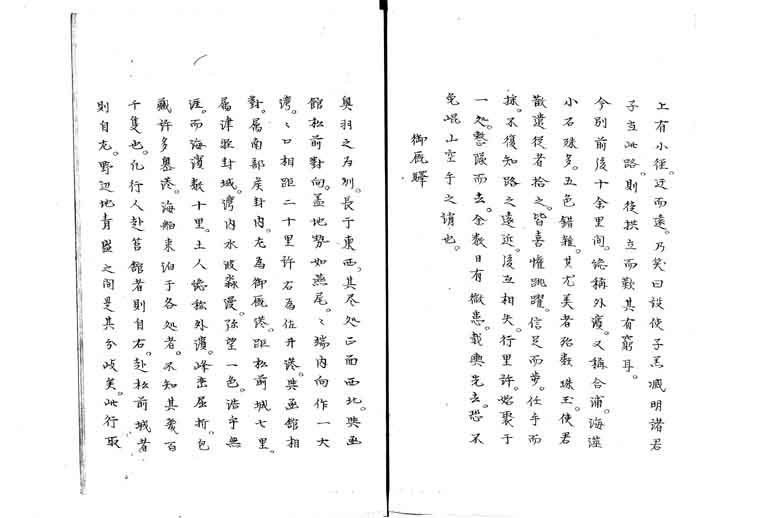 上有小徑。迂而遠。乃笑曰設使子羔滅明諸君
子当此路。則後拱立而歎其有窮耳。
今別前後十余里間。偬稱外濱。又稱合浦。海濱
小石殊多。五色錯雜。其尤美者殆欺珠玉。使君
散遣從者拾之。皆喜懽跳躍。信足而步。任手而
掠。不復知路之遠近。後互相失。行里許。始聚于
一処。整隊而去。余数日有微恙。載輿先去。恐不
免崑山空手之誚也。
御厩驛
奥羽之為州。長于東西。其尽処正面西北。與函
館松前對向。盖地勢如燕尾。〻端内向作一大
湾。〻口相距二十里許。右為佐井港。與函館相
對。属南部矦封内。左為御厩港。距松前城七里。
属津軽封域。湾内水波淼漫。弥望一色。浩乎無
涯。而海濱数十里。土人偬称外濱。峰巒屈折。包
藏許多嶴港。海舶来泊于各処者。不知其幾百
千隻也。凢行人赴筥館者則自右。赴松前城者
則自左。野辺地青盛之間是其分岐矣。此行取